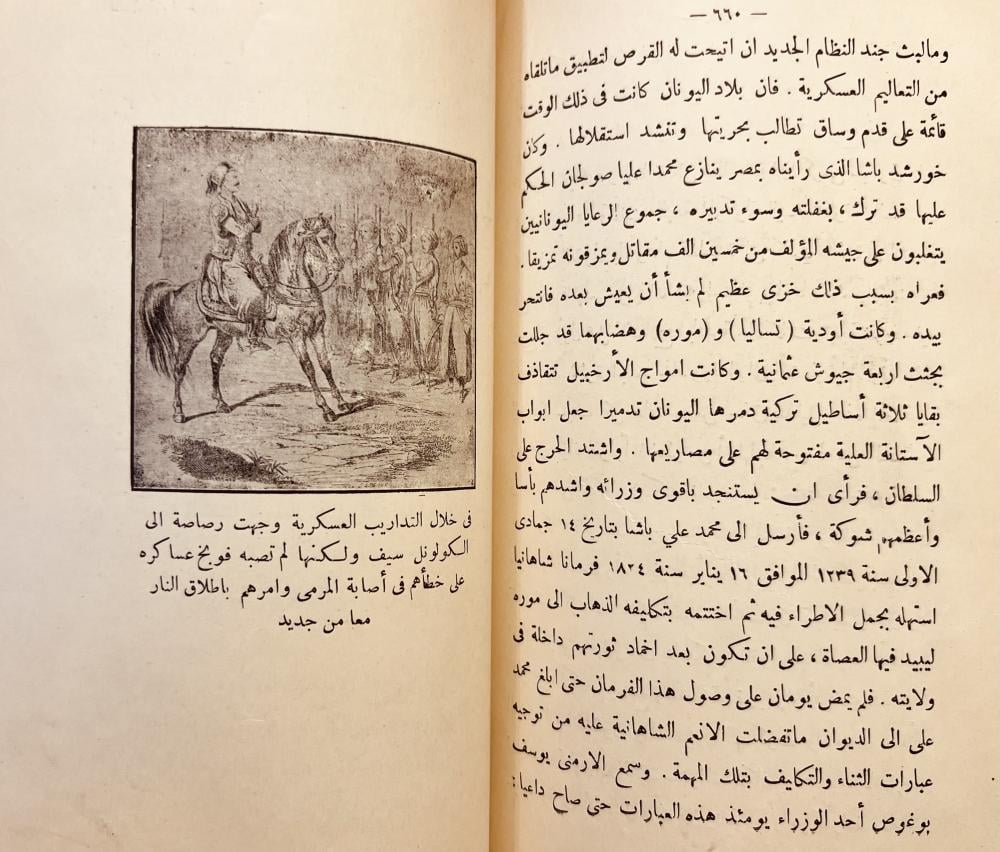 — ٦٦٠ —
ومالبث جند النظام الجديد ان اتيحت له القرص لتطبيق ماتلقاه
من التعاليم العسكرية . فان بلاد اليونان كانت فى ذلك الوقت
قائمة على قدم وساق تطالب بحريتها وتنشد استقلالها . وكان
خورشد باشا الذى رأيناه بمصر ينازع محمدا عليا صولجان الحكم
عليها قد ترك ، بغفلته وسوء تدبيره ، جموع الرعايا اليونانيين
يتغلبون على جيشه المؤلف من خمسين الف مقاتل ويمزقونه تمزيقا .
فعراه بسبب ذلك خزى عظيم لم يشأ أن يعيش بعده فانتحر
بيده . وكانت أودية ( تساليا ) و (موره) وهضابهما قد جللت
بجثث اربعة جيوش عثمانية . وكانت امواج الأرخبيل تتقاذف
بقايا ثلاثة أساطيل تركية دمرها اليونان تدميرا جعل ابواب
الآستانة العلية مفتوحة لهم على مصاريعها . واشتد الحرج على
السلطان ، فرأى ان يستنجد باقوى وزرائه واشدهم بأسا
وأعظمهم شوكة ، فأرسل الى محمد علي باشا بتاريخ ١٤ جمادى
الاولى سنة ١٢٣٩ الموافق ١٦ يناير سنة ١٨٢٤ فرمانا شاهانيا
استهله بجمل الاطراء فيه ثم اختتمه بتكليفه الذهاب الى موره
ليبيد فيها العصاة ، على ان تكون بعد اخماد ثورتهم داخلة فى
ولايته . فلم يمض يومان على وصول هذا الفرمان حتى ابلغ محمد
على الى الديوان ماتفضلت الانعم الشاهانية عليه من توجيه
عبارات الثناء والتكليف بتلك المهمة . وسمع الارمنى يوسف
بوغوص أحد الوزراء يومئذ هذه العبارات حتى صاح داعيا :
فى خلال التداريب العسكرية وجهت رصاصة الى
الكولونل سيف ولكنها لم تصبه فوبخ عساكره
على خطأهم فى أصابة المرمى وامرهم باطلاق النار
معا من جديد